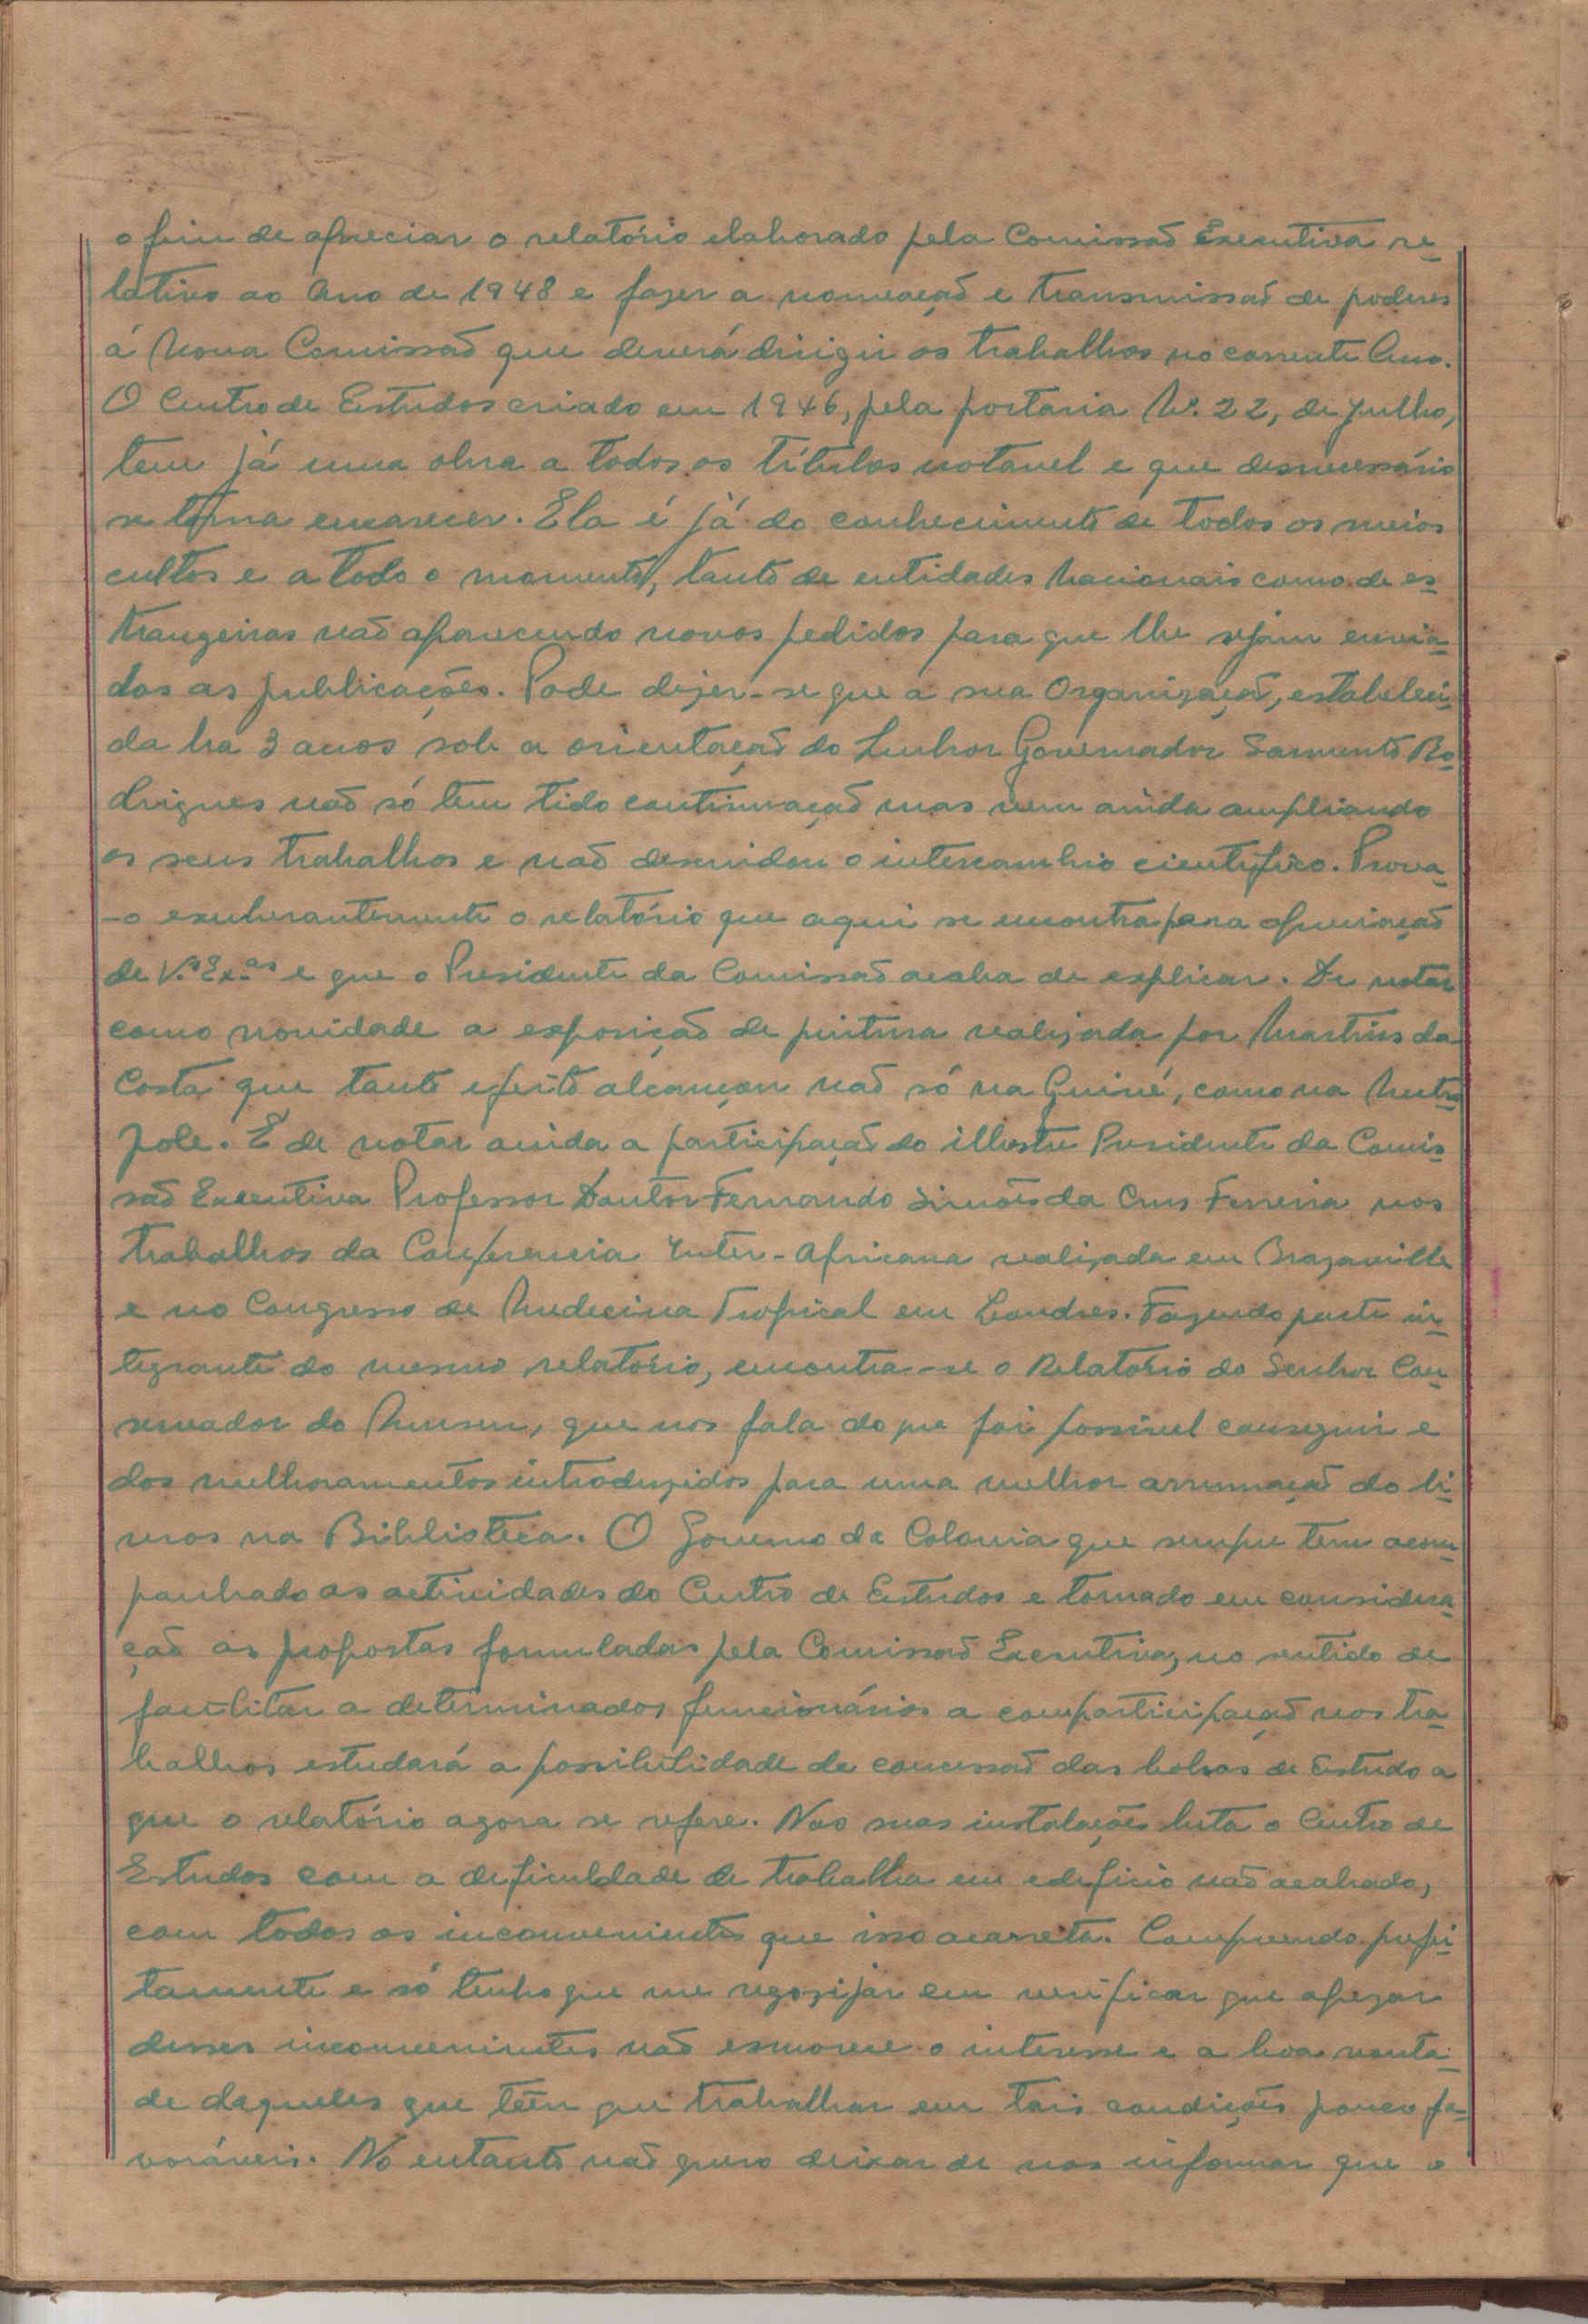 o fim de apreciar o relatório elaborado pela Comissão Executiva re-
lativo ao Ano de 1948 e fazer a nomeação e transmissão de poderes
á Nova Comissão que deverá dirigir os trabalhos no corrente Ano.
O Centro de Estudos criado em 1946, pela portaria Nº. 22, de Julho,
tem já uma obra a todos os títulos notavel e que desnecessário
se torna encarecer. Ela é já do conhecimento de todos os meios
cultos e a todo o momento, tanto de entidades Nacionais como de es-
trangeiras vão aparecendo novos pedidos para que lhe sejam envia-
das as publicações. Pode dizer-se que a sua Organização, estabeleci-
da ha 3 anos sob a orientação do Senhor Governador Sarmento Ro-
drigues não só tem tido continuação mas vem ainda ampliando
os seus trabalhos e não descuidou o intercambio cientifico. Prova-
-o exuberantemente o relatório que aqui se encontra para apreciação
de V.ªs Ex.as e que o Presidente da Comissão acaba de explicar. De notar
como novidade a exposição de pintura realizada por Martins da
Costa que tanto efeito alcançou não só na Guiné, como na Metro
pole. E de notar ainda a participação do illustre Presidente da Comis-
são Executiva Professor Doutor Fernando Simões da Cruz Ferreira nos
trabalhos da Conferencia Inter-Africana realizada em Brazaville
e no Congresso de Medecina Tropical em Londres. Fazendo parte in-
tegrante do mesmo relatório, encontra-se o Relatório do Senhor Con-
servador do Museu, que nos fala do que foi possivel conseguir e
dos melhoramentos introduzidos para uma melhor arrumação do li-
vros na Biblioteca. O Governo da Colonia que sempre tem acom-
panhado as actividades do Centro de Estudos e tomado em considera-
ção as propostas formuladas pela Comissão Executiva, no sentido de
facilitar a determinados funcionários a comparticipação nos tra-
balhos estudará a possibilidade de concessão das bolsas de Estudo a
que o relatório agora se refere. Nas suas instalações luta o Centro de
Estudos com a deficuldade de trabalha em edificio não acabado,
com todos os inconvenientes que isso acarreta. Compreendo perfei-
tamente e só tenho que me regozijar em verificar que apezar
desses inconvenientes não esmorece o interesse e a boa vonta-
de daqueles que têm que trabalhar em tais condições pouco fa-
voráveis. No entanto não quero deixar de vos informar que o